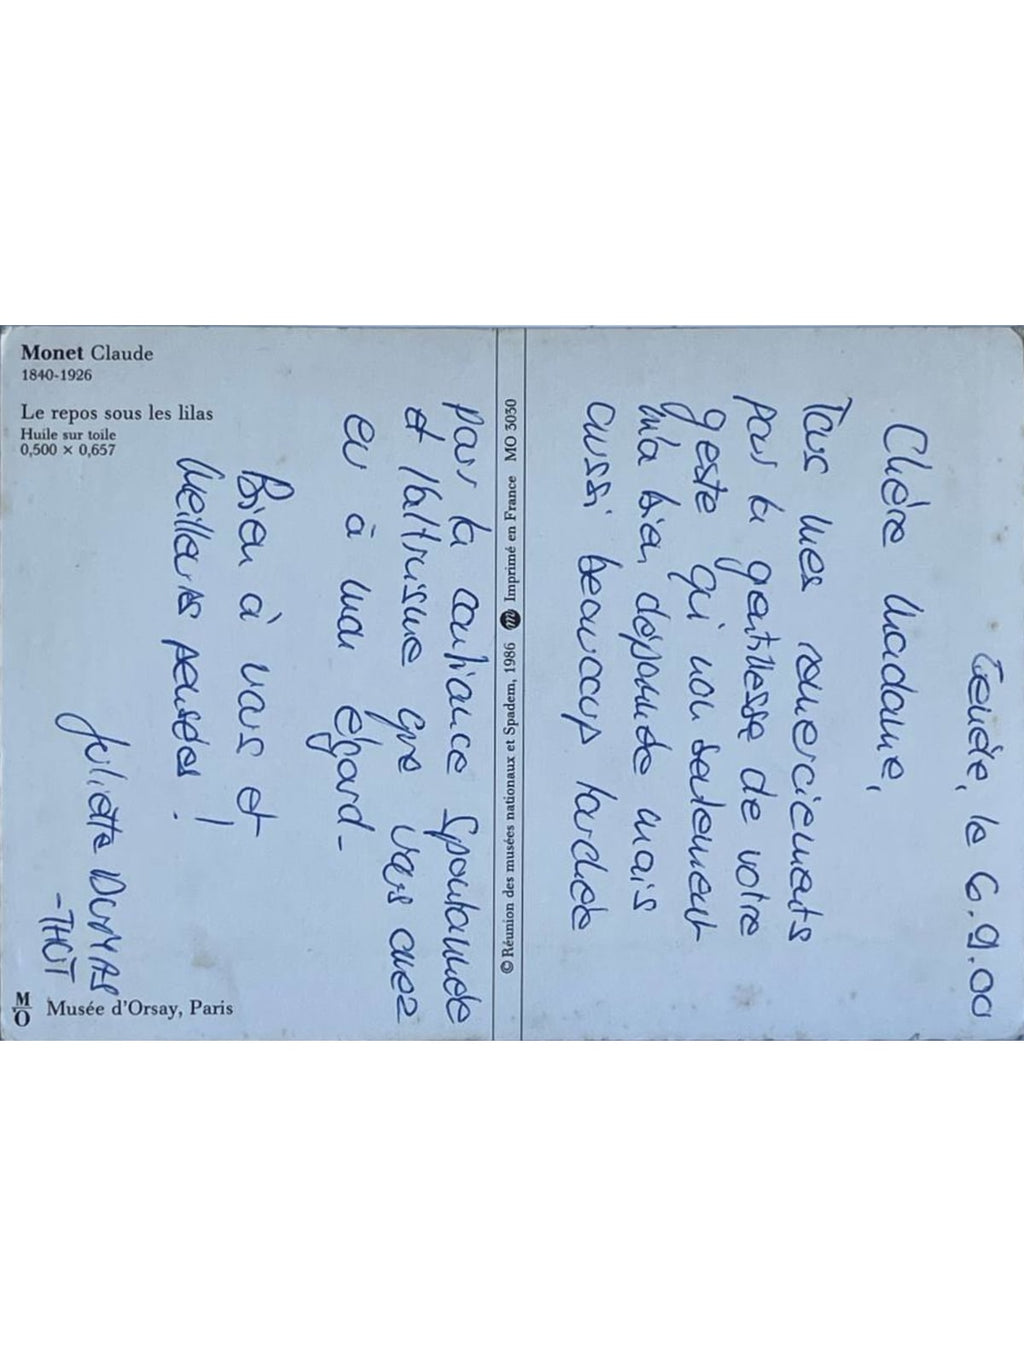 Monet Claude
1840-1926
Le repos sous les lilas
Huile sur toile
0,500 × 0,657
© Réunion des musées nationaux et Spadem, 1986 m Imprimé en France MO 3050
M
O
Musée d'Orsay, Paris
Genève, le 6.9.00
Chère Madame,
Tous mes remerciements
pour la gentillesse de votre
geste qui non seulement
m'a bien dépannée mais
aussi beaucoup touchée
par la confiance spontanée
et l'altruisme que vous avez
eu à mon égard-
Bien à vous et
Meilleures pensées !
Juliette DUMAS